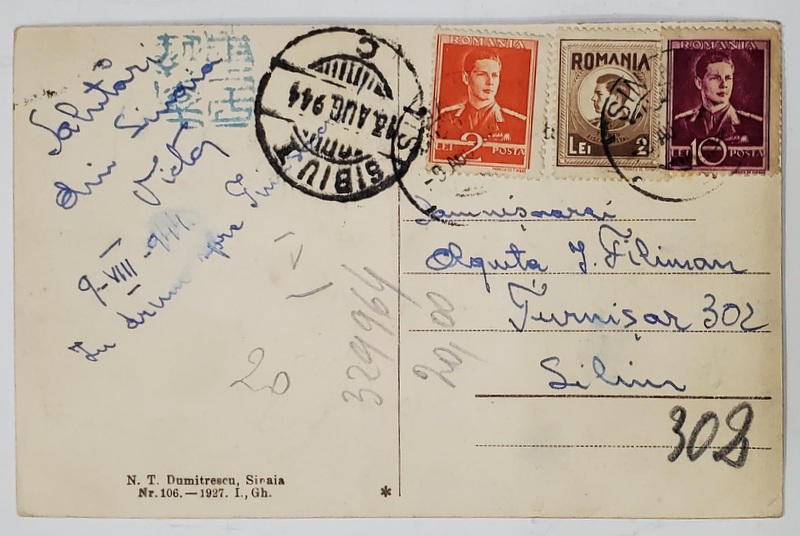 Salutări
din Sinaia
Victor
9-VIII-944
In drum spre
SIBIU 1
13.AUG.944
C
ROMANIA
LEI 2 POSTA
ROMANIA
LEI 2
ROMANIA
LEI 10 POSTA
Domnișoarei
J. Filiman
Turnișor 302
Sibiu
302
20
329964
20,00
N. T. Dumitrescu, Sinaia
Nr. 106.—1927. I., Gh.
*